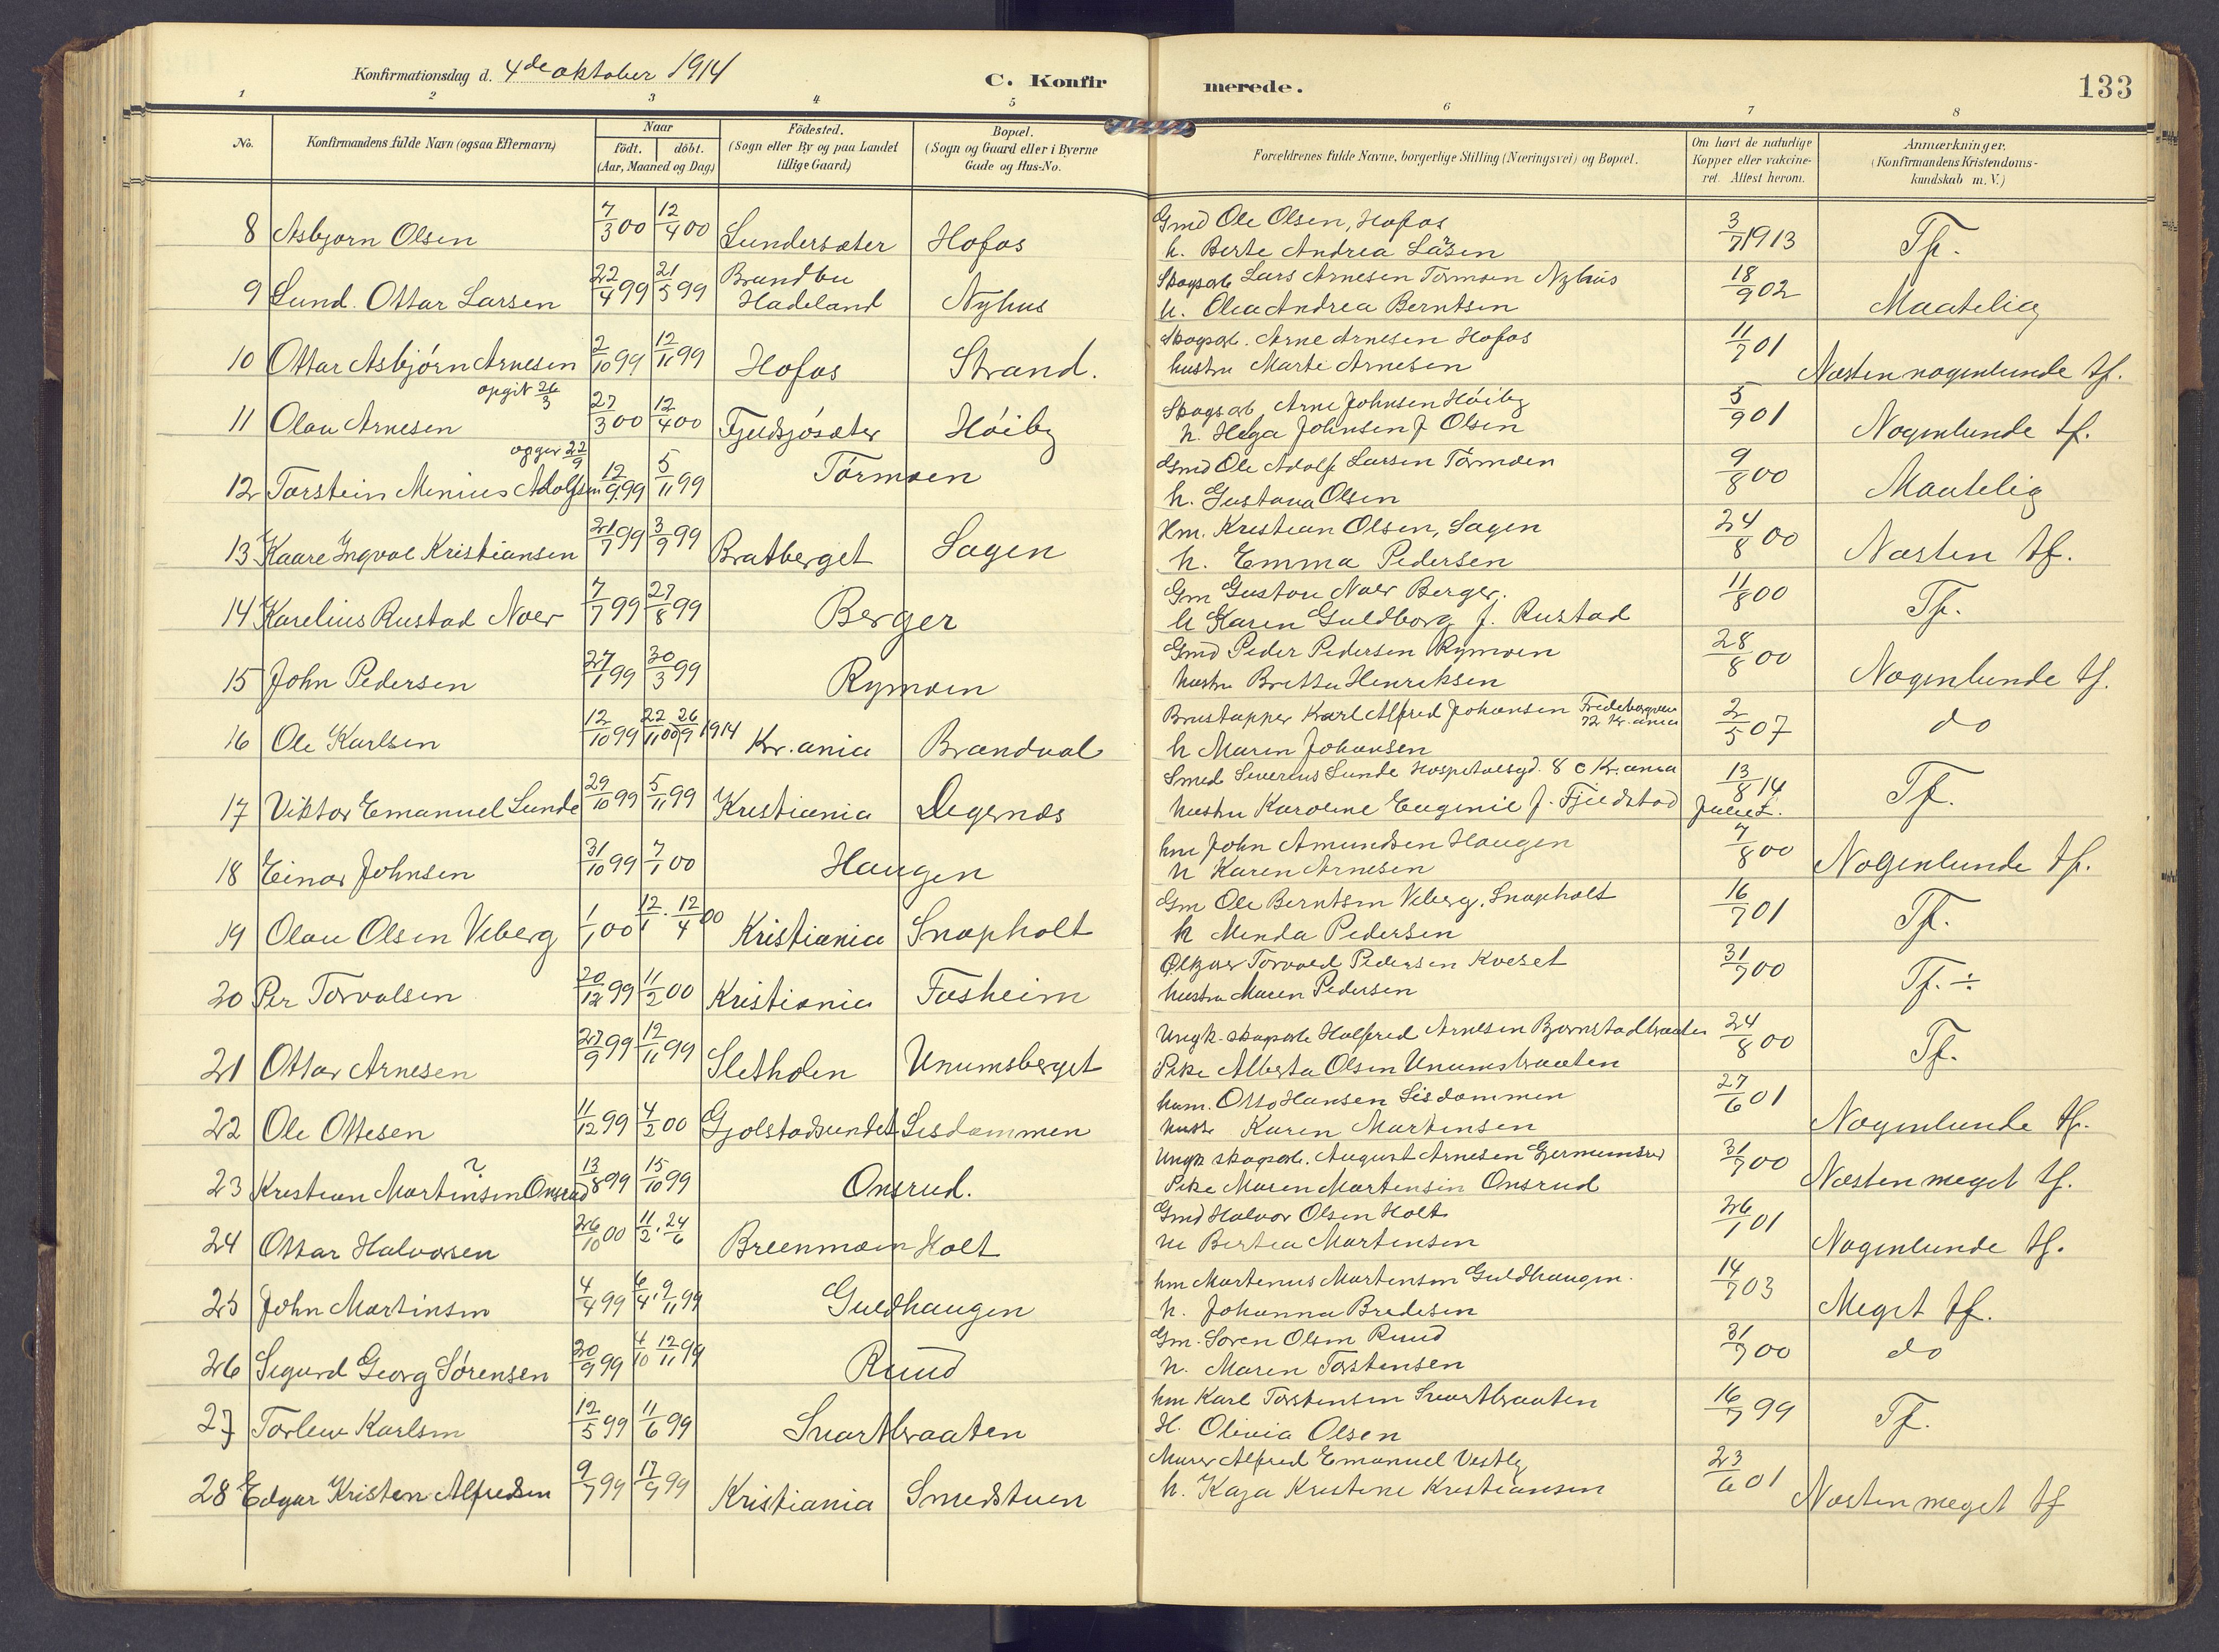 Konfirmationsdag d. 4de oktober 1914
C. Konfir merede. 133
1 2 3 4 5 6 7 8
No. Konfirmandens fulde Navn (ogsaa Efternavn)
Naar født. døbt. (Aar, Maaned og Dag.)
Födested. (Sogn eller By og paa Landet tillige Gaard)
Bopæl. (Sogn og Gaard eller i Byerne Gade og Hus-No.
Forældrenes fulde Navne, borgerlige Stilling (Næringsvei) og Bopæl.
Om havt de naturlige Kopper eller vakcineret. Attest herom.
Anmærkninger. (Konfirmandens Kristendomskundskab m. V.)
8 Asbjørn Olsen 7/3 00 12/4 00 Lundersæter Hofos
Gmd Ole Olsen, Hofos
h. Berte Andrea Låsen 3/7 1913 Tf.
9 Lund. Ottar Larsen 22/4 99 21/5 99 Brandbu Hadeland Nyhus
Skogsarb Lars Arnesen Tormoen Nyhus
h. Olea Andrea Berntsen 18/9 02 Maatelig
10 Ottar Asbjørn Arnesen 2/10 99 12/11 99 Hofos Strand.
Skogsarb. Arne Arnesen Hofos
hustru Marte Arnesen 11/7 01 Næsten nogenlunde tf.
opgit 26/3
11 Olav Arnesen 27/3 00 12/4 00 Fjeldsjøsæter Høiby
Skogsarb Arne Johnsen Høiby
h. Helga Johnsen f Olsen 5/9 01 Nogenlunde tf.
opgiv 22/9
12 Torstein Menius Adolfsen 12/9 99 5/11 99 Tørmoen
Gmd Ole Adolf Larsen Tørmoen
h. Gustava Olsen 9/8 00 Maatelig
13 Kaare Ingval Kristiansen 21/7 99 3/9 99 Bratberget Sagen
Hm. Kristian Olsen, Sagen
h. Emma Pedersen 24/8 00 Næsten tf.
14 Karelius Rustad Noer 7/7 99 27/8 99 Berger
Gm Gustav Noer Berger.
h Karen Guldborg f. Rustad 11/8 00 Tf.
15 John Pedersen 27/1 99 30/3 99 Rymoen
Gmd Peder Pedersen Rymoen
hustru Britta Henriksen 28/8 00 Nogenlunde tf.
16 Ole Karlsen 12/10 99 22/11 00 26/9 1914 Kr.ania Brandval
Brustapper Karl Alfred Johansen 72 Kr.ania
h Maren Johansen 2/5 07 do
17 Viktor Emanuel Lunde 29/10 99 5/11 99 Kristiania Degernes
Smed Severius Lunde Hospitalsgd. 8 c Kr.ania
hustru Karoline Eugenie f. Fjeldstad 13/8 14 Tf.
18 Einar Johnsen 31/10 99 7/1 00 Haugen
hm John Amundsen Haugen
h Karen Arnesen 7/8 00 Nogenlunde tf.
19 Olav Olsen Viberg 1/1 00 12/1. 12/4 00 Kristiania Snapholt
Gm Ole Berntsen Viberg, Snapholt
h Minda Pedersen 16/7 01 Tf.
20 Per Torvalsen 20/12 99 11/2 00 Kristiania Fosheim
Torvald Pedersen Kveset
hustru Maren Pedersen 31/7 00 Tf. ÷
21 Ottar Arnesen 27/9 99 12/11 99 Sletholen Unumsberget
Ungk. skogsarb Halfred Arnesen Bjørnstadbraaten
Pike Alberta Olsen Unumsbraaten 24/8 00 Tf.
22 Ole Ottesen 11/12 99 4/2 00 Gjolstadsundet Lisdammen
hum. Otto Hansen Lisdammen
hustr Karen Martinsen 27/6 01 Nogenlunde tf.
23 Kristian Martinsen Onsrud ? 13/8 99 15/10 99 Onsrud.
Ungk skogsarb. August Arnesen Germumsrud
Pike Maren Martensin Onsrud 31/7 00 Næsten meget tf.
24 Ottar Halvorsen 26/10 00 11/2. 24/6 Breenmoen Holt
Gmd Halvor Olsen Holt
h Bertea Martensen 26/1 01 Nogenlunde tf.
25 John Martinsen 4/4 99 6/4. 9/11 99 Guldhaugen
hm Martenus Martensen Guldhaugen.
h. Johanna Bredesen 14/7 03 Meget tf.
26 Sigurd Georg Sørensen 20/9 99 4/10 12/11 99 Ruud
Gm. Søren Olsen Ruud
h. Maren Torstensen 31/7 00 do
27 Torleiv Karlsen 12/5 99 11/6 99 Svartbraaten
hm Karl Torstensen Svartbraaten
H. Olivia Olsen 16/7 99 Tf.
28 Edgar Kristen Alfredsen 9/7 99 17/9 99 Kristiania Smedstuen
Murer Alfred Emanuel Vestby
h. Kaja Kristine Kristiansen 23/6 01 Næsten meget tf